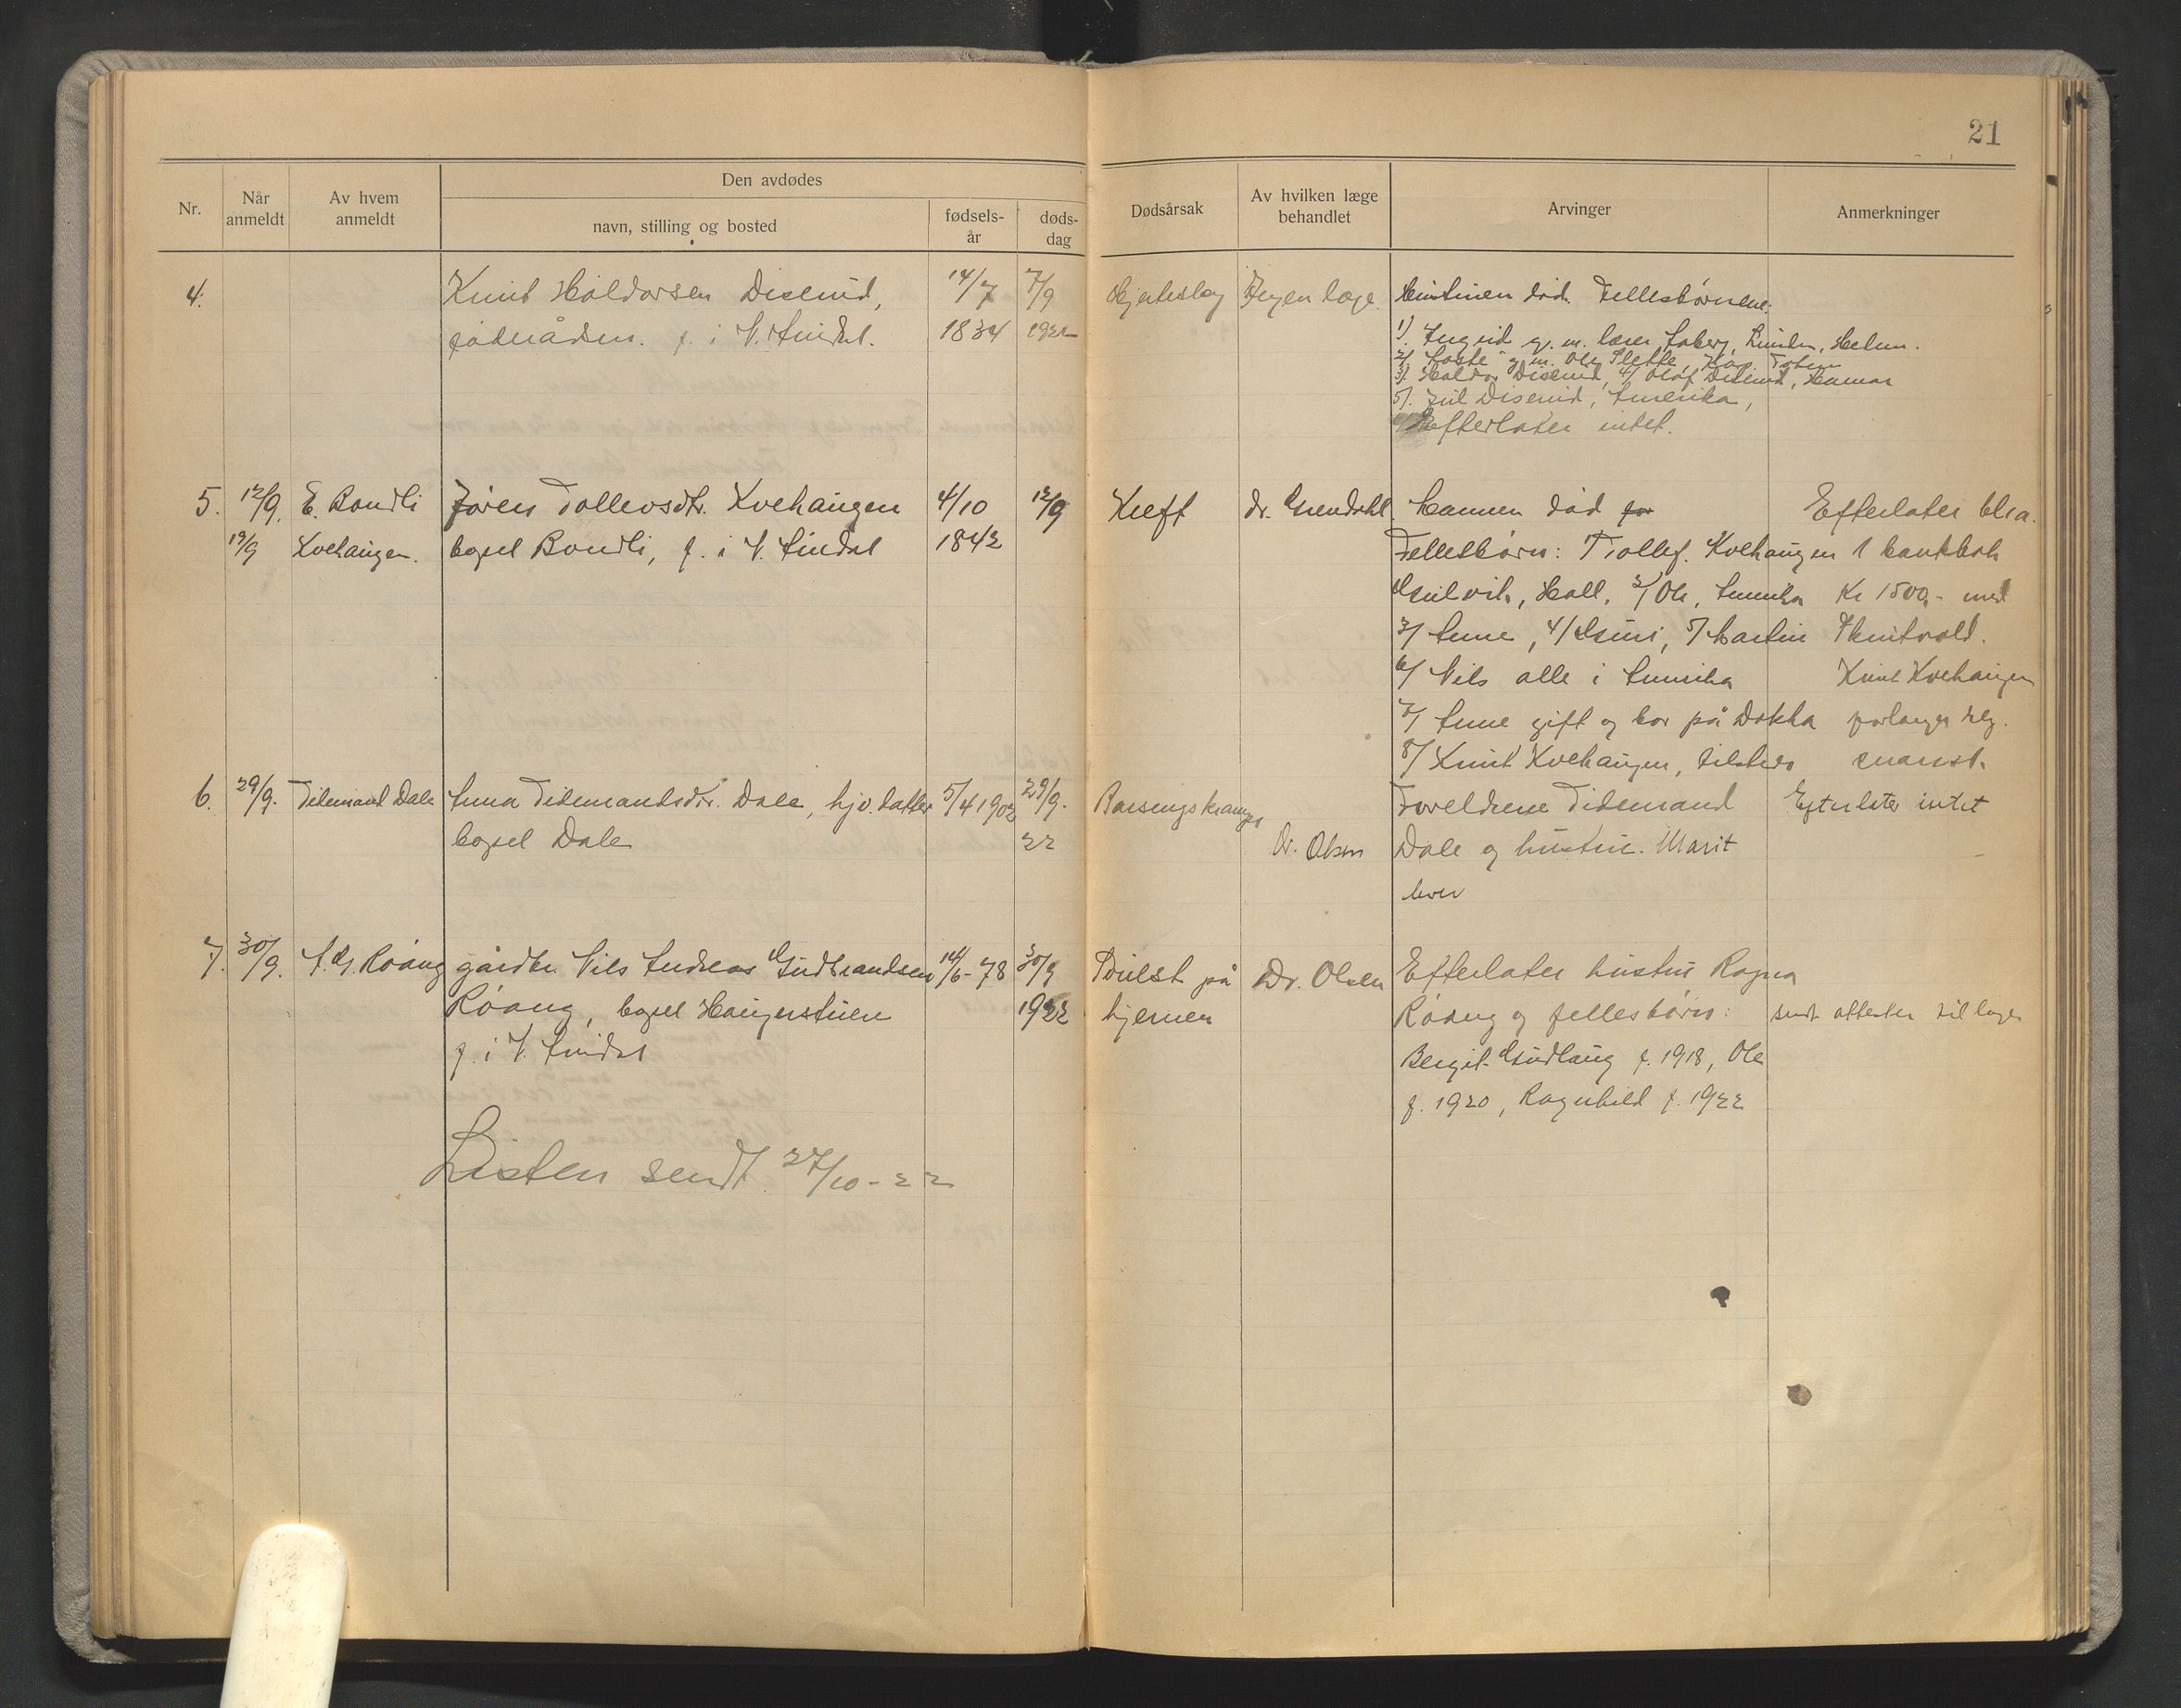 21
Nr.
Når anmeldt
Av hvem anmeldt
Den avdødes
navn, stilling og bosted
fødsels-år
døds-dag
Dødsårsak
Av hvilken læge behandlet
Arvinger
Anmerkninger
4.
Knut Haldorsen Diserud,
f. i V. Slidre.
14/7
1834
7/9
1922
Hjerteslag
Ingen læge.
Hustruen død. Fellesbørnene:
1). Ingrid g. m.
3). Haldor Diserud, 4/ Olaf Diserud, Hamar
5/. Jul Diserud, Amerika,
Efterlater intet.
5.
12/9.
19/9
E. Bondli
Kvehaugen.
Jøren Tollevsdtr. Kvehaugen
bopel Bondli, f. i
4/10
1842
12/9
Kreft
dr. Grøndahl.
Mannen død for
Fellesbørn: Tollef. Kvehaugen
2/ Ole, Amerika
3/ Anne, 4/ Guri, 5/ Martin
6/ Nils alle i Amerika
7/ Anne gift og bor på Dokka
8/ Knut Kvehaugen, tilsteds
Efterlater bl.a.
1 bankbok
Kr 1500,- med
Knut Kvehaugen
forlanger
6.
29/9.
Tidemand Dale
Anna Tidemandsdtr. Dale, hjv. datter
bopel Dale
5/4 1902
29/9.
22
Dr. Olsen
Foreldrene Tidemand
Dale og hustru. Marit
lever
Efterlater intet
7.
30/9.
A. G. Røang
gårdbr. Nils Andreas Gudbrandsen
Røang, bopel Haugerstuen
f. i
14/6-78
30/9
1922
Svulst på
hjernen
Dr. Olsen
Efterlater hustru Ragna
Røang og fellesbørn:
Bergit Gudlaug f. 1918, Ole
f. 1920, Ragnhild f. 1922
sendt attester til
Listen sendt 27/10-22